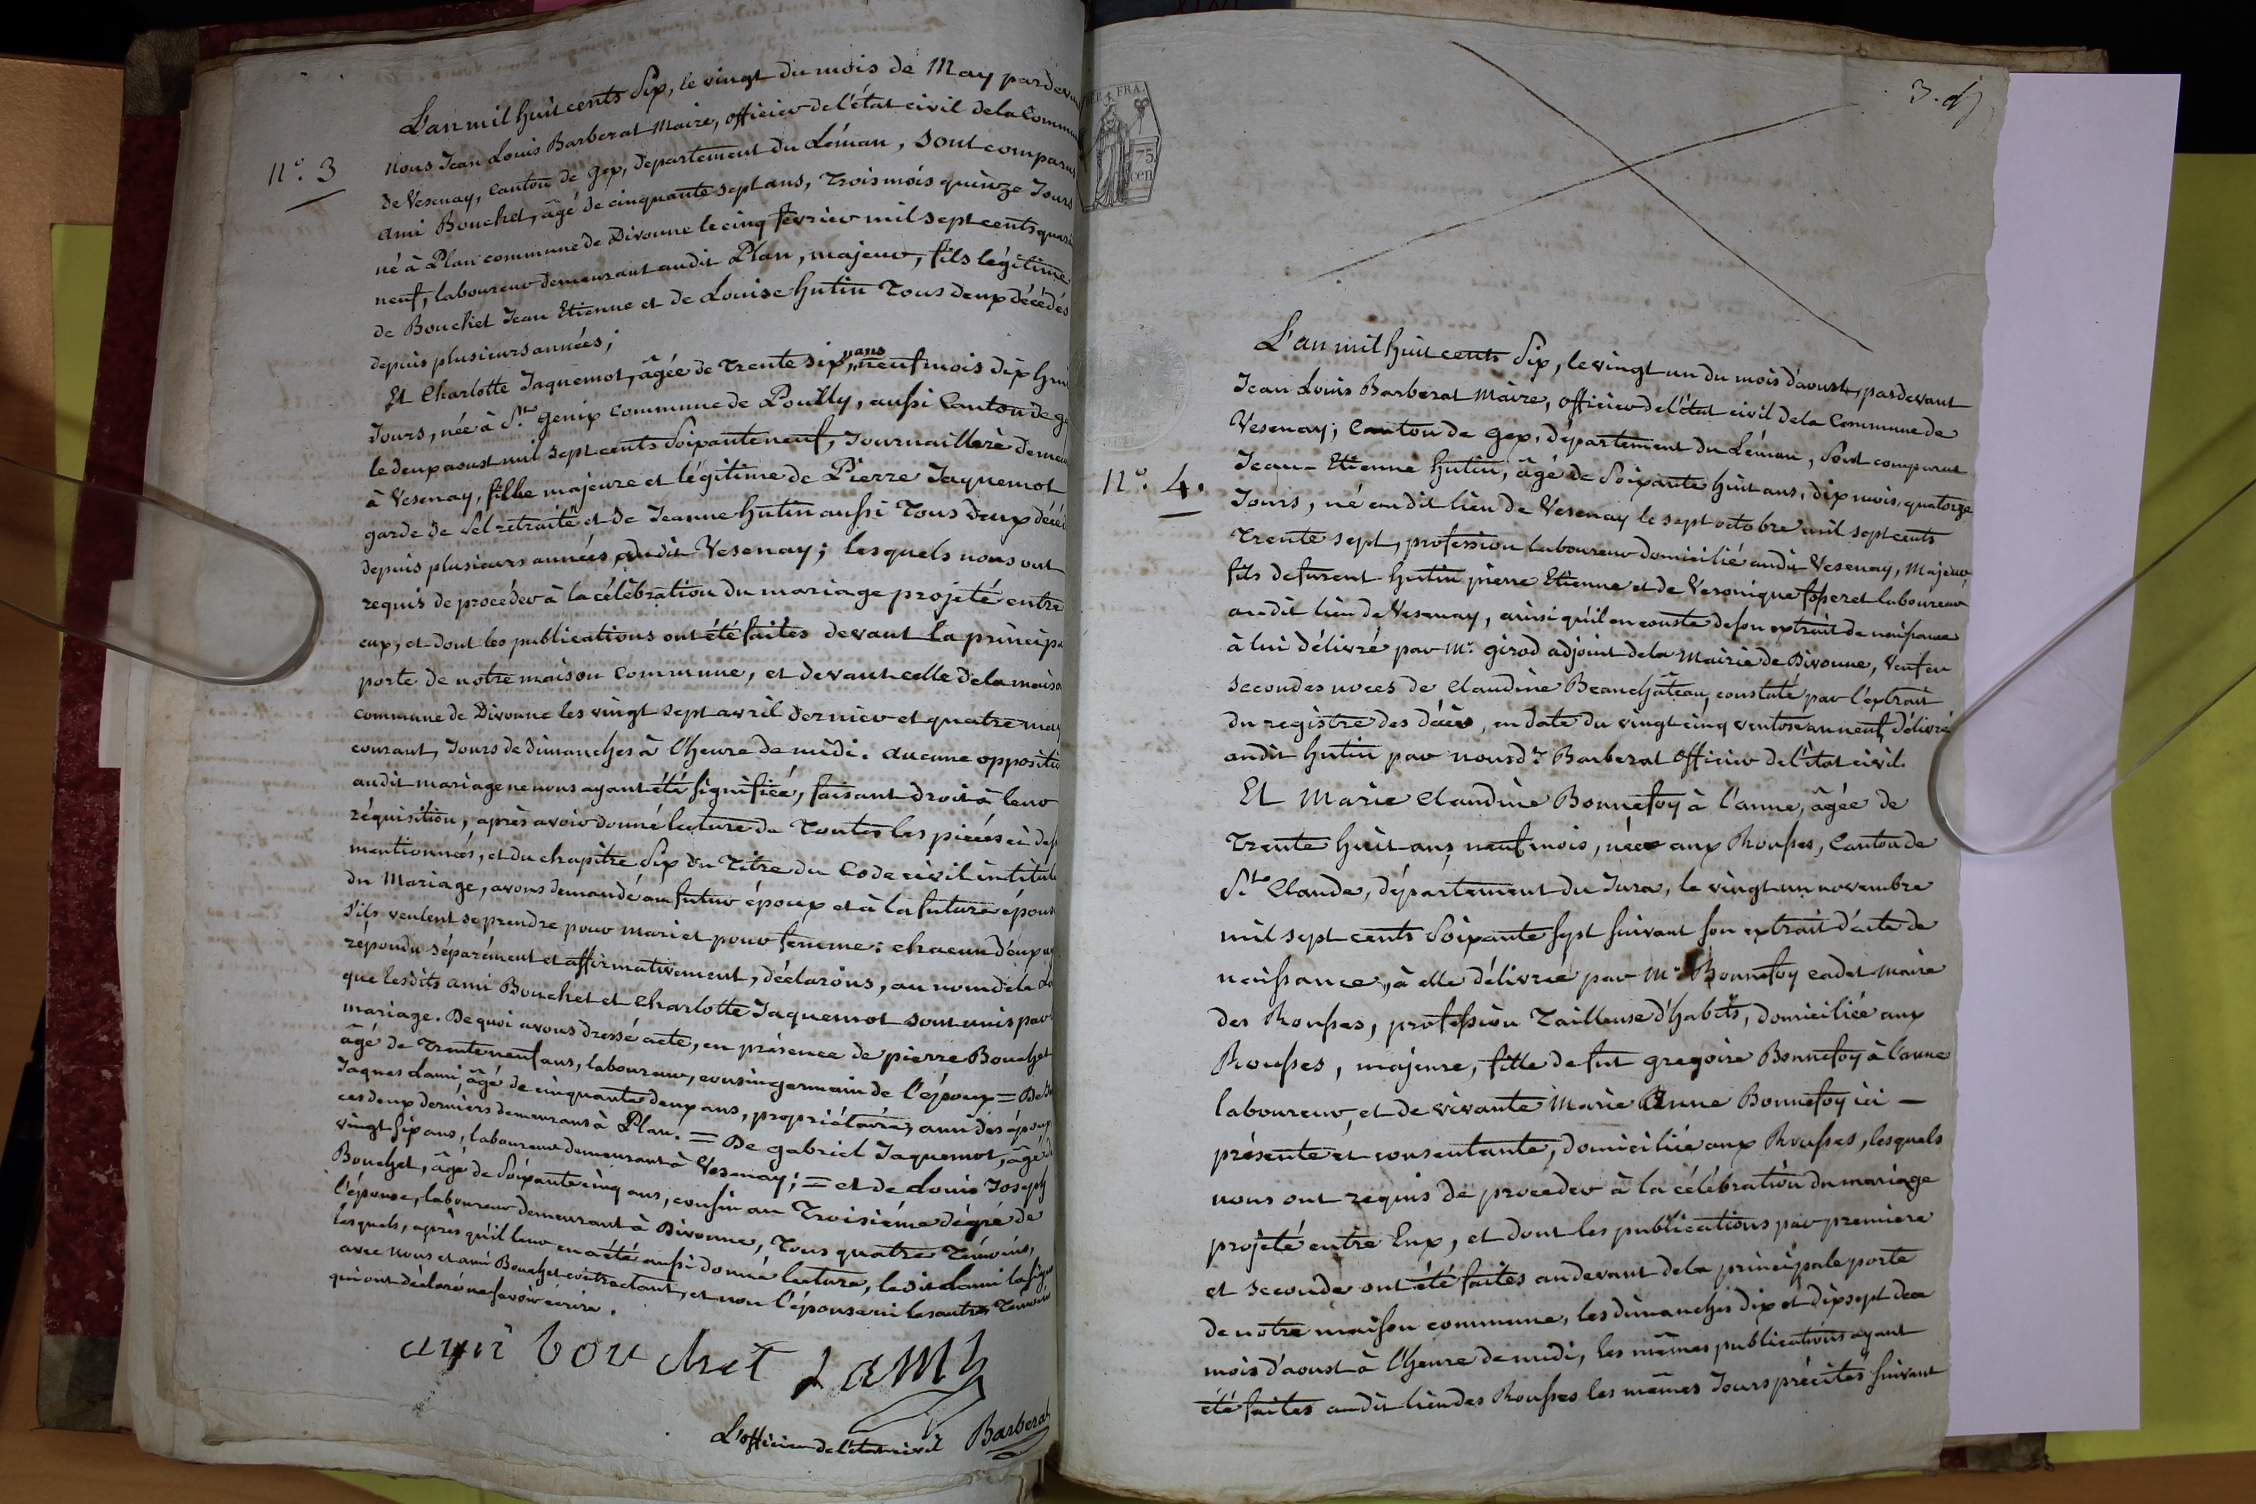 L'an mil huit cents Six, le vingt du mois de May pardevant
nous Jean Louis Barberat Maire, officier de l'état civil de la Commune
N.° 3
de Vesenay, canton de gex, departement du Léman, sont comparus
ami Bouchet, âgé de cinquante sept ans, Trois mois quinze Jours
né à Plan commune de Divonne le cinq février mil sept cents quara
neuf, laboureur demeurant audit Plan, majeur, fils légitime
de Bouchet Jean Etienne et de Louise hutin Tous deux décédés
depuis plusieurs années;
Et Charlotte Jaquemot, âgée de Trente six ans neuf mois dix huit
Jours, née à St genix commune de Pouilly, aussi Canton de gex
le deux aoust mil sept cents soixante neuf, Journaillere demeu
à Vesenay, fille majeure et légitime de Pierre Jaquemot
garde de Sel retraité et de Jeanne hutin aussi Tous deux décéd
depuis plusieurs années audit Vesenay; lesquels nous ont
requis de procéder à la célébration du mariage projeté entre
eux, et dont les publications ont été faites devant la principa
porte de notre maison commune, et devant celle de la maiso
commune de Divonne les vingt sept avril dernier et quatre may
courant, Jours de dimanches à l'heure de midi. aucune oppositio
audit mariage ne nous ayant été signifiée, faisant droit à leur
réquisition, après avoir donné lecture de Toutes les pièces ci dess
mentionnées, et du chapitre Six du Titre du Code civil intitulé
du Mariage, avons demandé au futur époux et à la future épouse
s'ils veulent se prendre pour mari et pour femme: chacun d'eux ay
répondu séparément et affirmativement, déclarons, au nom de la Lo
que lesdits ami Bouchet et Charlotte Jaquemot sont unis par
mariage. De quoi avons dressé acte, en présence de pierre Bouchet
âgé de trente neuf ans, laboureur, cousin germain de l'époux = De
Jaques Lami, âgé de cinquante deux ans, propriétaire, ami des époux
ces deux derniers demeurans à Plan. = De gabriel Jaquemot, âgé d
vingt six ans, laboureur demeurant à Vesenay; = et de Louis Joseph
Bouchet, âgé de soixante cinq ans, cousin au Troisième dégré de
l'épouse, laboureur demeurant à Divonne, Tous quatre Témoins,
lesquels, après qu'il leur en a été aussi donné lecture, ledit Lami la signé
avec nous et ami Bouchet contractant, et non l'épouse ni les autres Témoins
qui ont déclaré ne savoir écrire.
ami bouchet LAMY
L'officier de l'état civil Barberat
R.F. FRA.
75
cen
3.
L'an mil huit cents Six, le vingt un du mois d'aoust, pardevant
Jean Louis Barberat Maire, officier de l'état civil de la Commune de
Vesenay; Canton de gex, département du Léman, Sont comparus
N.° 4.
Jean-Etienne hutin, âgé de Soixante huit ans, dix mois, quatorze
Jours, né audit lieu de Vesenay le sept octobre mil sept cents
Trente sept, profession laboureur domicilié audit Vesenay, Majeur,
fils defurent hutin pierre Etienne et de Veronique fosseret laboureur
audit lieu de Vesenay, ainsi qu'il en conste de son extrait de naissance
à lui délivré par Mr. girod adjoint de la Mairie de Divonne, Veuf en
secondes noces de Claudine Beauchâteau, constaté par l'extrait
du registre des décès, en date du vingt cinq ventose an neuf, délivré
audit hutin par nousdt Barberat Officier de l'état civil.
Et Marie Claudine Bonnefoy à l'anne, âgée de
Trente huit ans, neuf mois, née aux Rousses, Canton de
St. Claude, département du Jura, le vingt un novembre
mil sept cents soixante sept suivant son extrait d'acte de
naissance, à elle délivrée par Mr Bonnefoy cadet maire
des Rousses, profession Tailleuse d'habits, domiciliée aux
Rousses, majeure, fille de fut gregoire Bonnefoy à l'anne
laboureur, et de vivante Marie Anne Bonnefoy ici -
présente et consentante, domiciliée aux Rousses, lesquels
nous ont requis de proceder à la célébration du mariage
projeté entre Eux, et dont les publications par premiere
et seconde ont été faites audevant de la principale porte
de notre maison commune, les dimanches dix et dix sept du
mois d'aoust à l'heure de midi, les mêmes publications ayant
été faites audit lieu des Rousses les mêmes Jours précités suivant